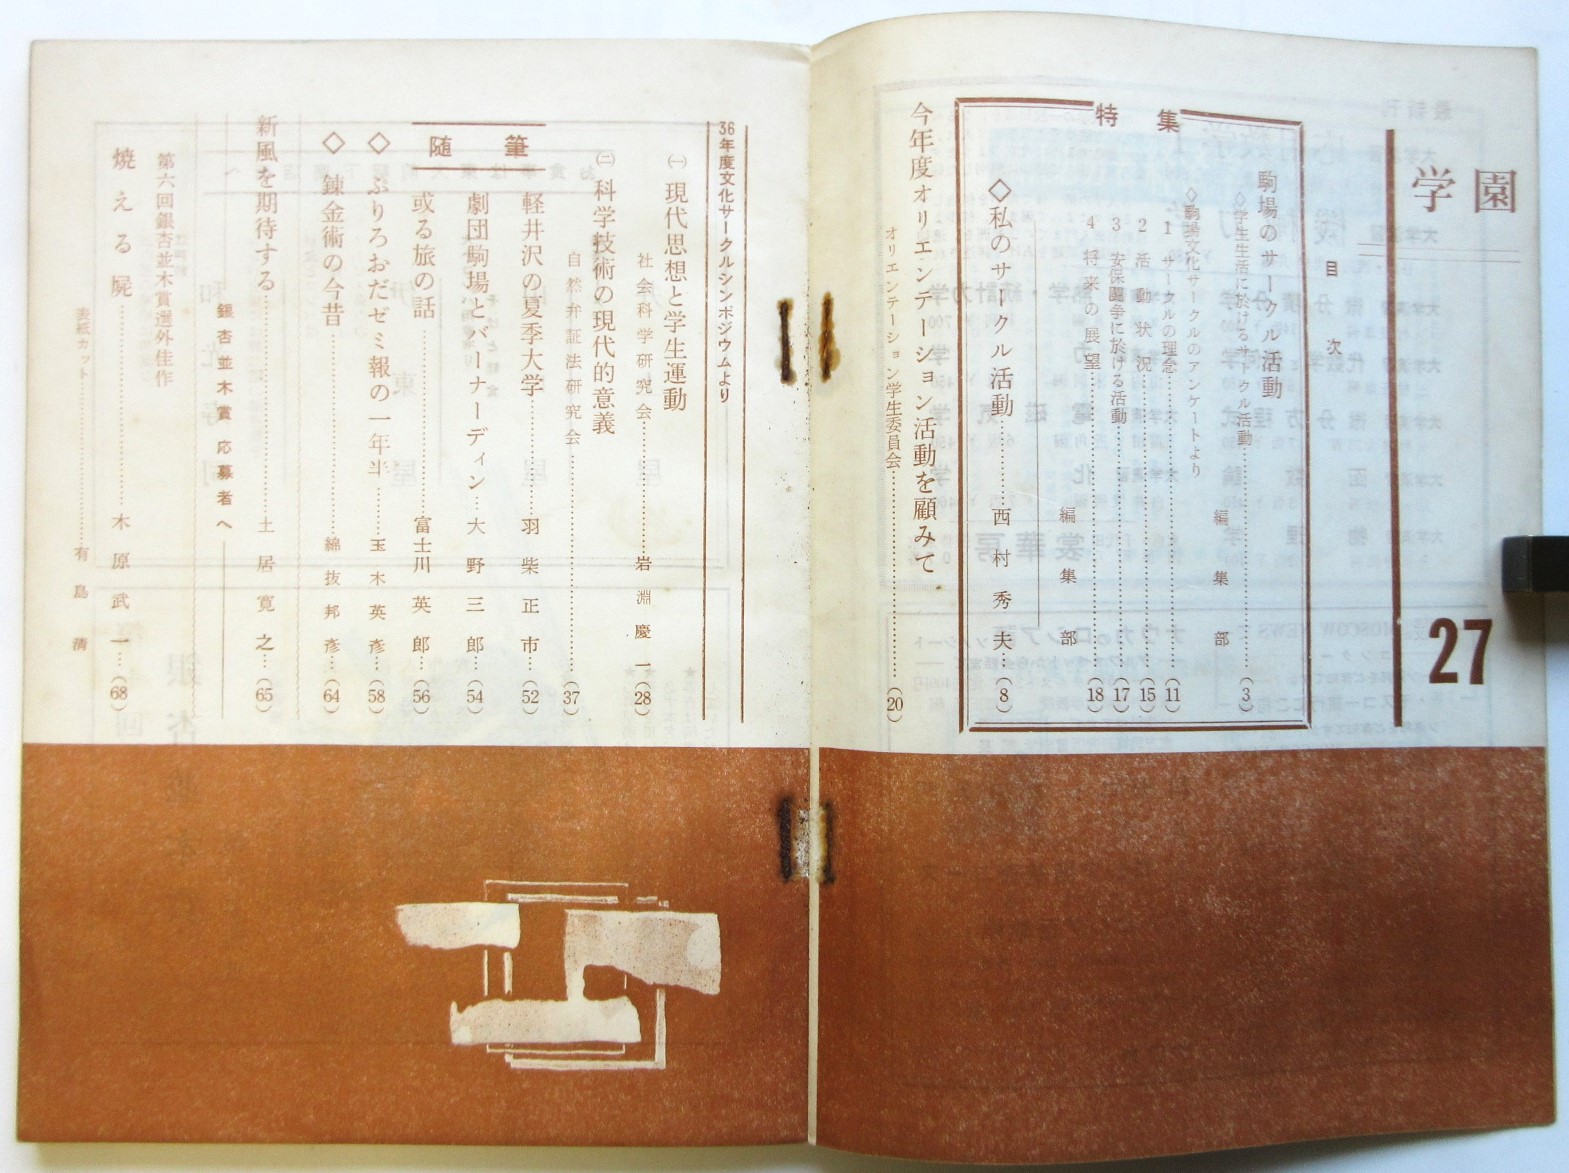 学園
27
目次
特集
駒場のサークル活動
◇学生生活に於けるサークル活動……編集部…(3)
◇駒場文化サークルのアンケートより
1 サークルの理念……(11)
2 活動状況……(15)
3 安保闘争に於ける活動……(17)
4 将来の展望……(18)
編集部
◇私のサークル活動……西村秀夫…(8)
今年度オリエンテーション活動を顧みて
オリエンテーション学生委員会……(20)
36年度文化サークルシンポジウムより
㈠ 現代思想と学生運動
社会科学研究会……岩淵慶一…(28)
㈡ 科学技術の現代的意義
自然弁証法研究会……(37)
随筆
軽井沢の夏季大学……羽柴正市…(52)
劇団駒場とバーナーディン…大野三郎…(54)
或る旅の話……富士川英郎…(56)
◇ぷりろおだゼミ報の一年半……玉木英彦…(58)
◇錬金術の今昔……綿抜邦彦…(64)
新風を期待する……土居寛之…(65)
銀杏並木賞応募者へ
第六回銀杏並木賞選外佳作
燒える屍……木原武一…(68)
表紙カット……有島清